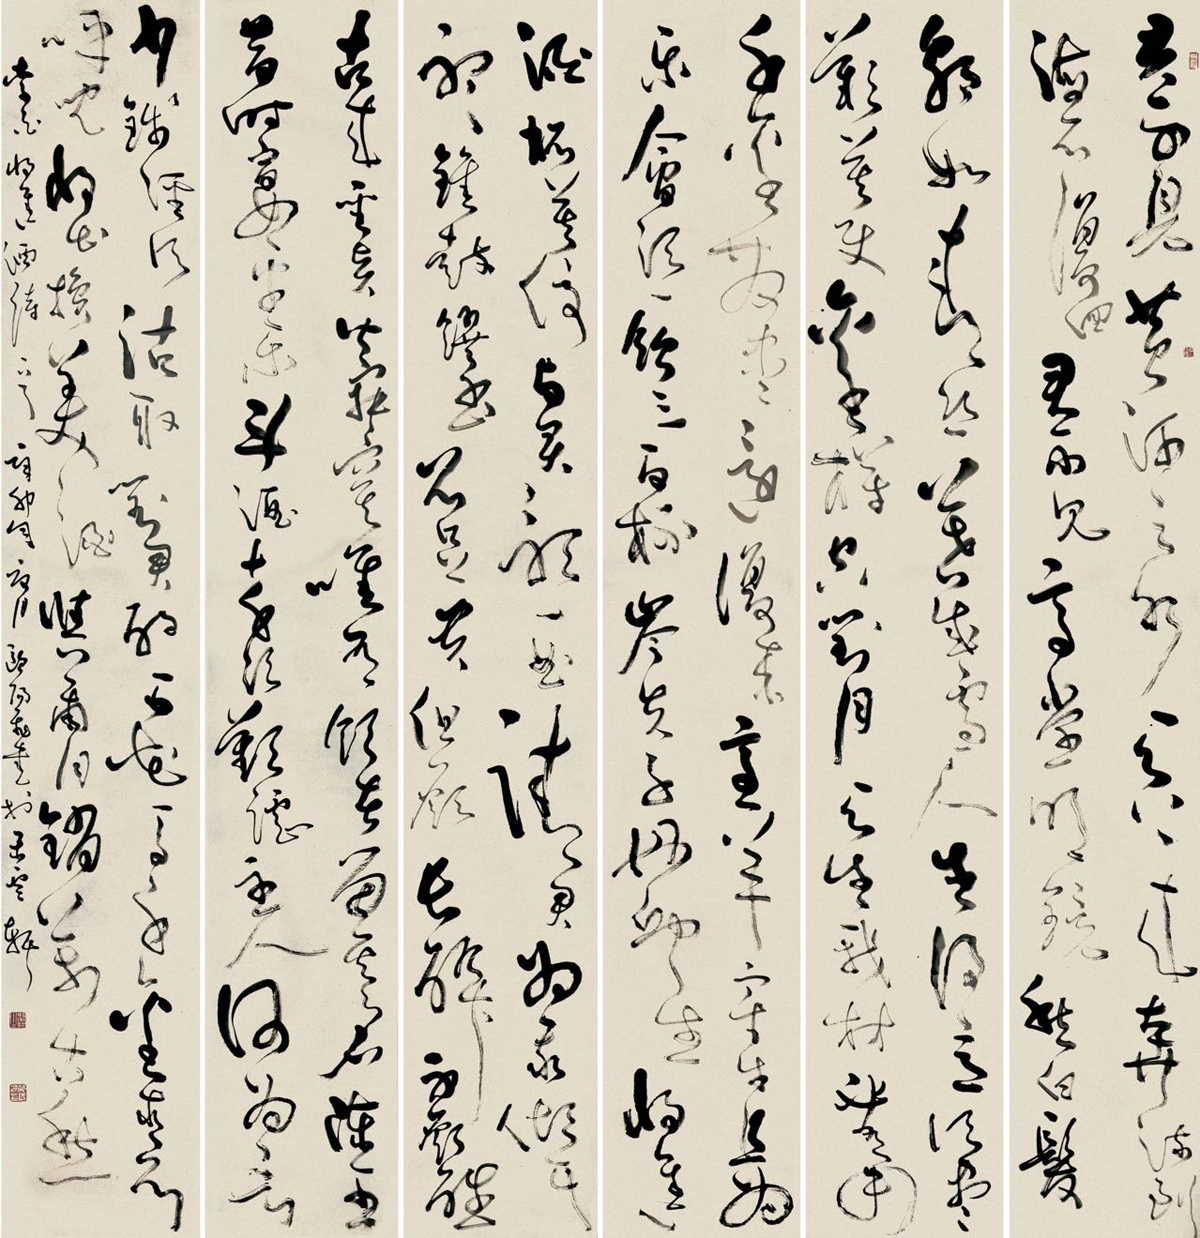 君不見黃河之水天上來奔流到
海不復回君不見高堂明鏡愁白髮
朝如青絲暮成雪人生得意須盡
歡莫使金樽空對月天生我材必有用
千金散盡還復來烹羊宰牛且為
樂會須一飲三百杯岑夫子丹丘生將進
酒杯莫停與君歌一曲請君為我傾耳
聽鐘鼓饌玉不足貴但願長醉不願醒
古來聖賢皆寂寞唯有飲者留其名陳王
昔時宴平樂斗酒十千恣歡謔主人何為言
少錢徑須沽取對君酌五花馬千金裘
呼兒將出換美酒與爾同銷萬古愁
李白將進酒詩一首辛卯年夏月歐陽書於雲軒